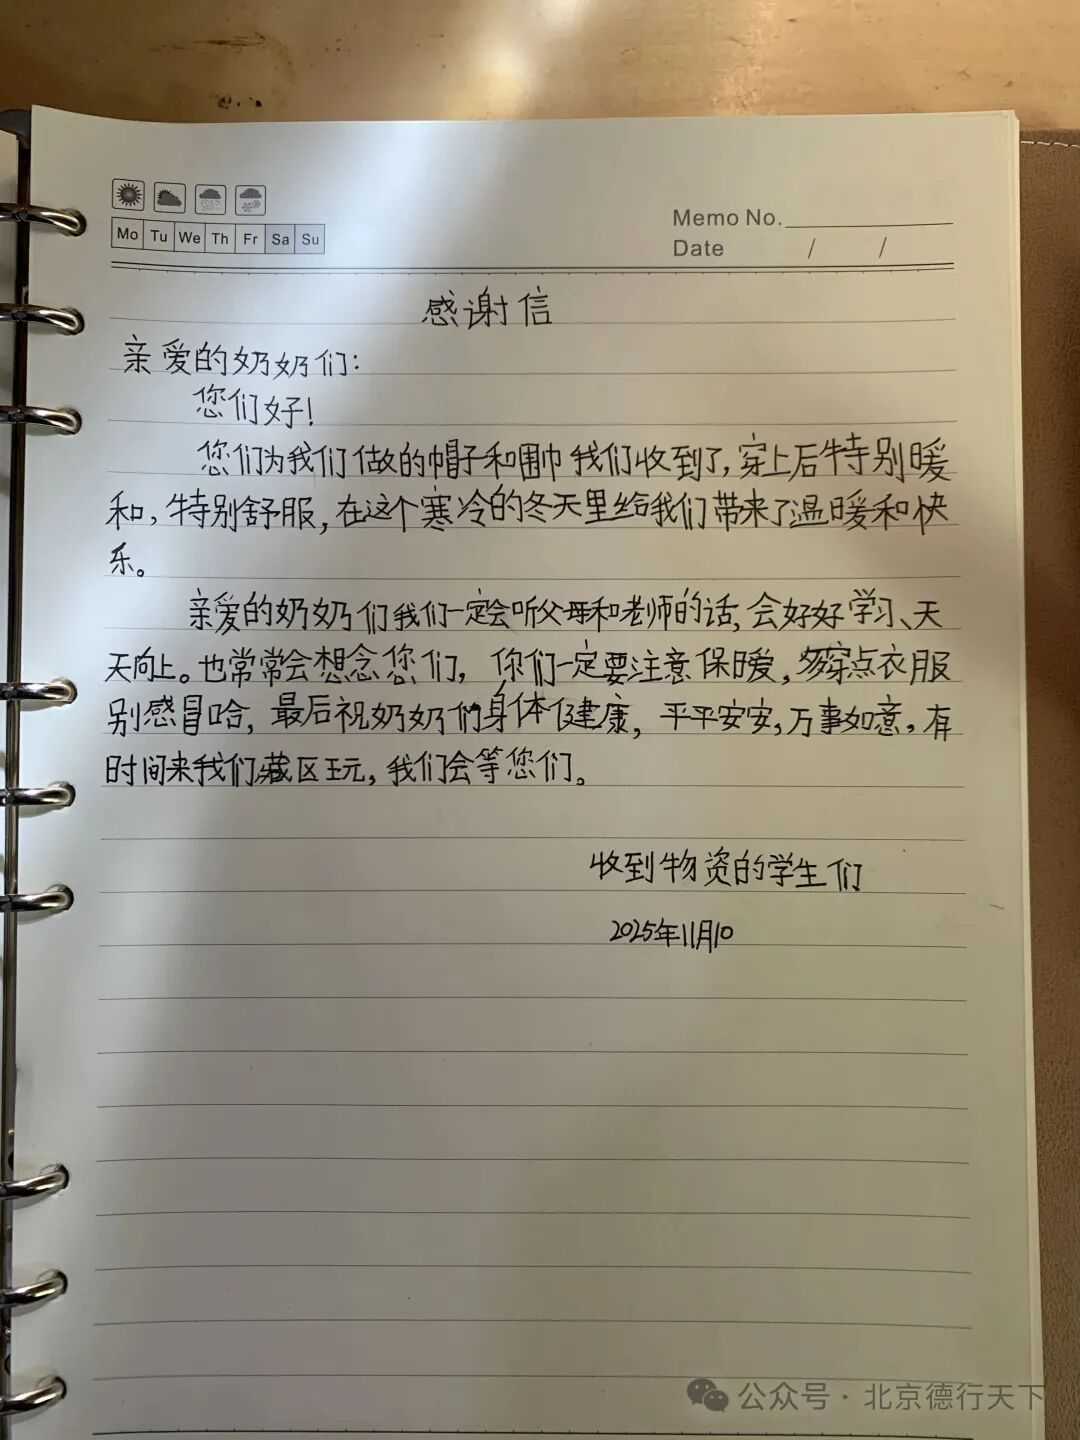 Mo Tu We Th Fr Sa Su
Memo No.
Date / /
感谢信
亲爱的奶奶们：
您们好！
您们为我们做的帽子和围巾我们收到了，穿上后特别暖
和，特别舒服，在这个寒冷的冬天里给我们带来了温暖和快
乐。
亲爱的奶奶们我们一定会听父母和老师的话，会好好学习、天
天向上。也常常会想念您们，你们一定要注意保暖，多穿点衣服
别感冒哈，最后祝奶奶们身体健康，平平安安，万事如意，有
时间来我们藏区玩，我们会等您们。
收到物资的学生们
2025年11月10
公众号·北京德行天下